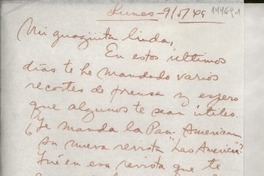 Lunes-9/5/49
Mi guagüita linda,
En estos últimos
días te he mandado varios
recortes de prensa y espero
que algunos te sean útiles.
¿Te manda la Pan-American
su nueva revista "Las Américas"?
Fué en esa revista que te